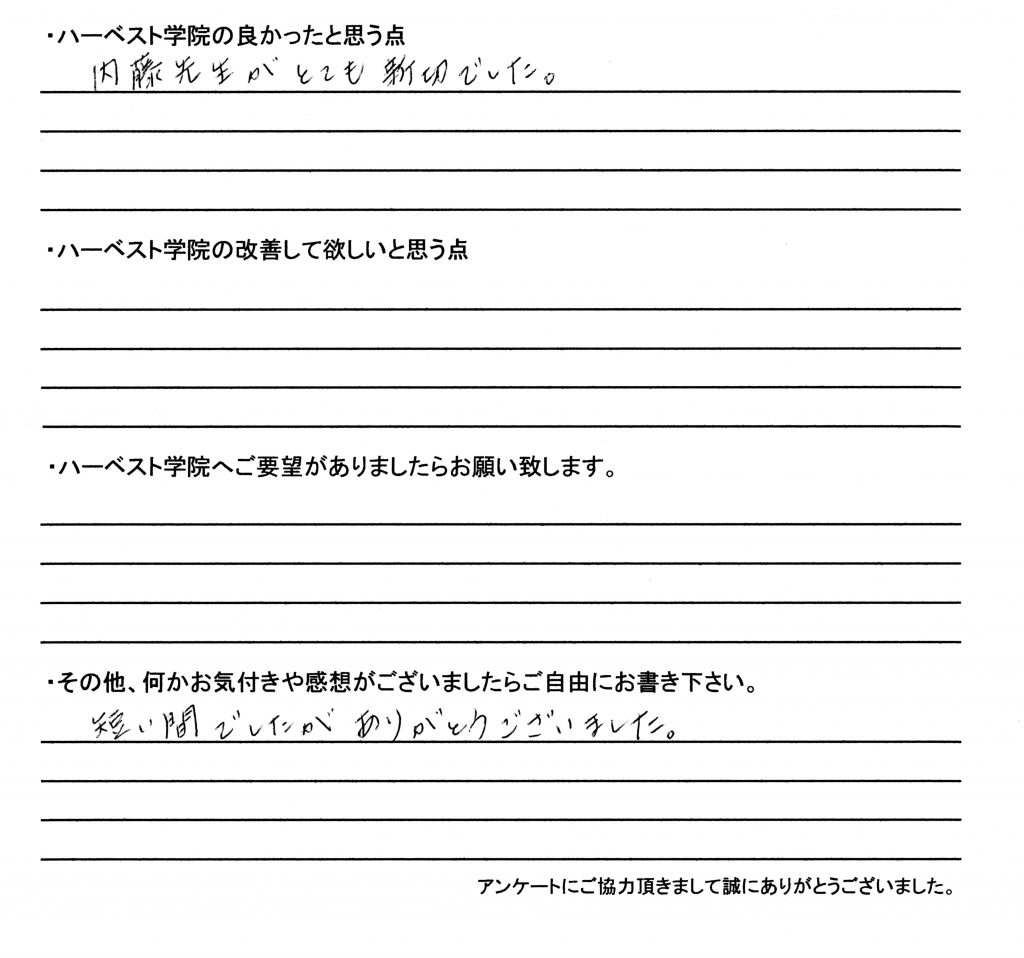 ・ハーベスト学院の良かったと思う点
内藤先生がとても親切でした。
・ハーベスト学院の改善して欲しいと思う点
・ハーベスト学院へご要望がありましたらお願い致します。
・その他、何かお気付きや感想がございましたらご自由にお書き下さい。
短い間でしたがありがとうございました。
アンケートにご協力頂きまして誠にありがとうございました。